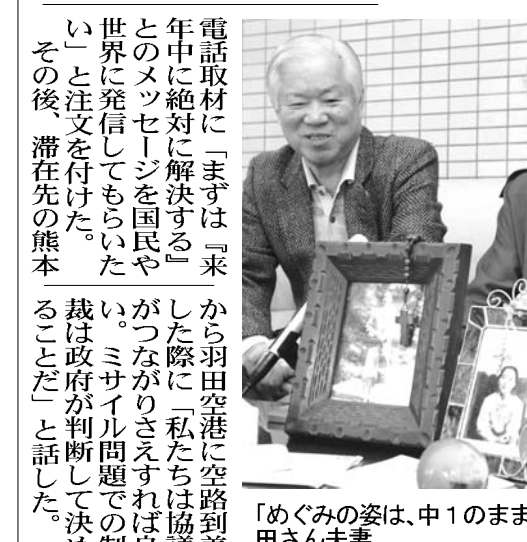 電話取材に「まずは『来
年中に絶対に解決する』
とのメッセージを国民や
世界に発信してもらいた
い」と注文を付けた。
その後、滞在先の熊本
から羽田空港に空路到着
した際に「私たちは協議
がつながりさえすれば良
い。ミサイル問題での制
裁は政府が判断して決め
ることだ」と話した。
「めぐみの姿は、中１のまま
田さん夫妻